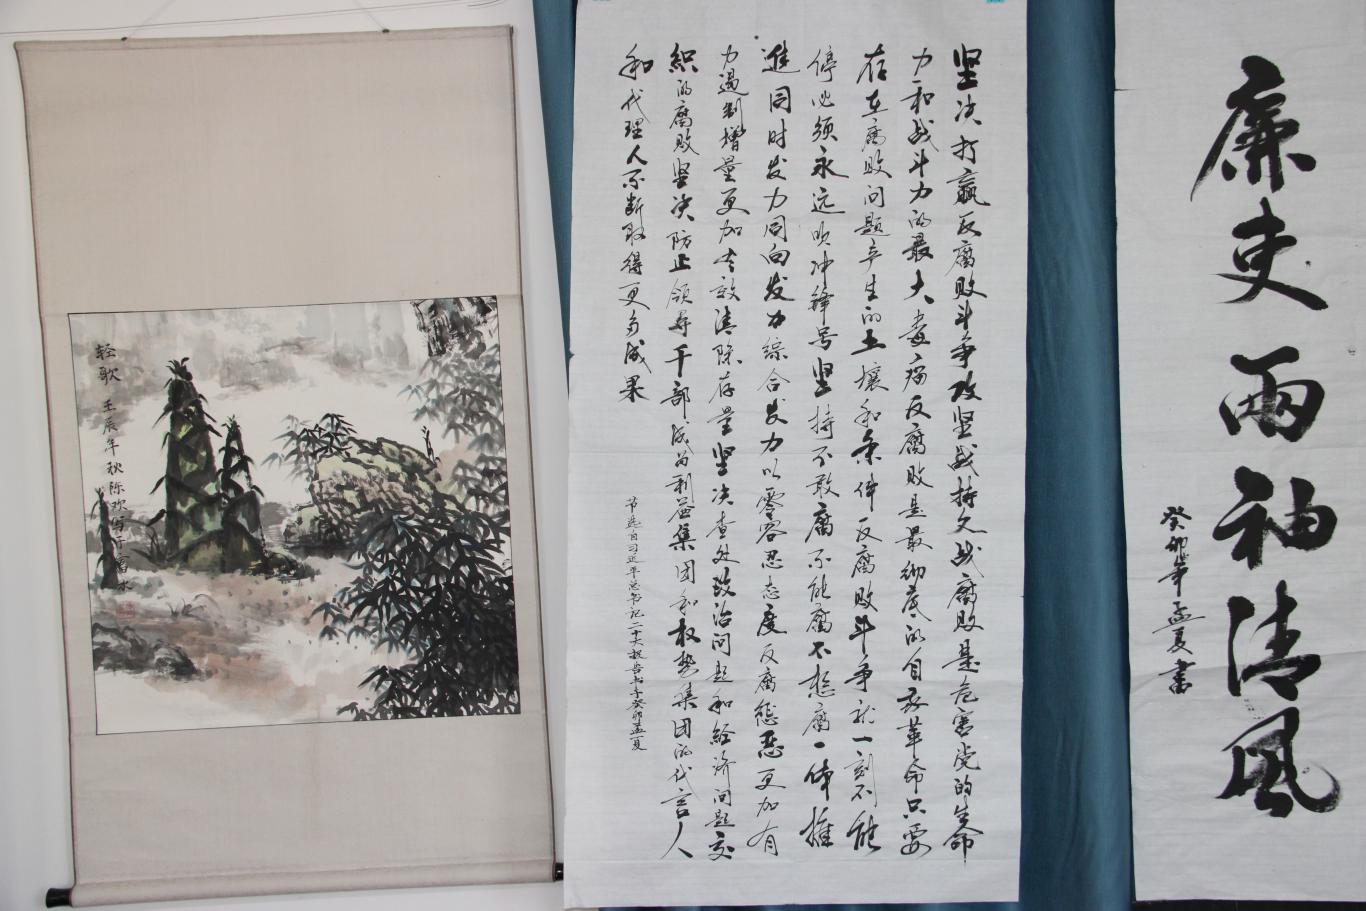 廉吏两袖清风
癸卯年孟夏書
坚决打赢反腐败斗争攻坚战持久战腐败是危害党的生命
力和战斗力的最大毒瘤反腐败是最彻底的自我革命只要
存在腐败问题产生的土壤和条件反腐败斗争就一刻不能
停必须永远吹冲锋号坚持不敢腐不能腐不想腐一体推
進同时发力同向发力综合发力以零容忍态度反腐惩恶更加有
力遏制增量更加有效清除存量坚决查处政治问题和经济问题交
织的腐败坚决防止领导干部成为利益集团和权势集团的代言人
和代理人不断取得更多成果
节选自习近平总书记二十大报告书于癸卯孟夏
轻歌
壬辰年秋陈欢写于富水